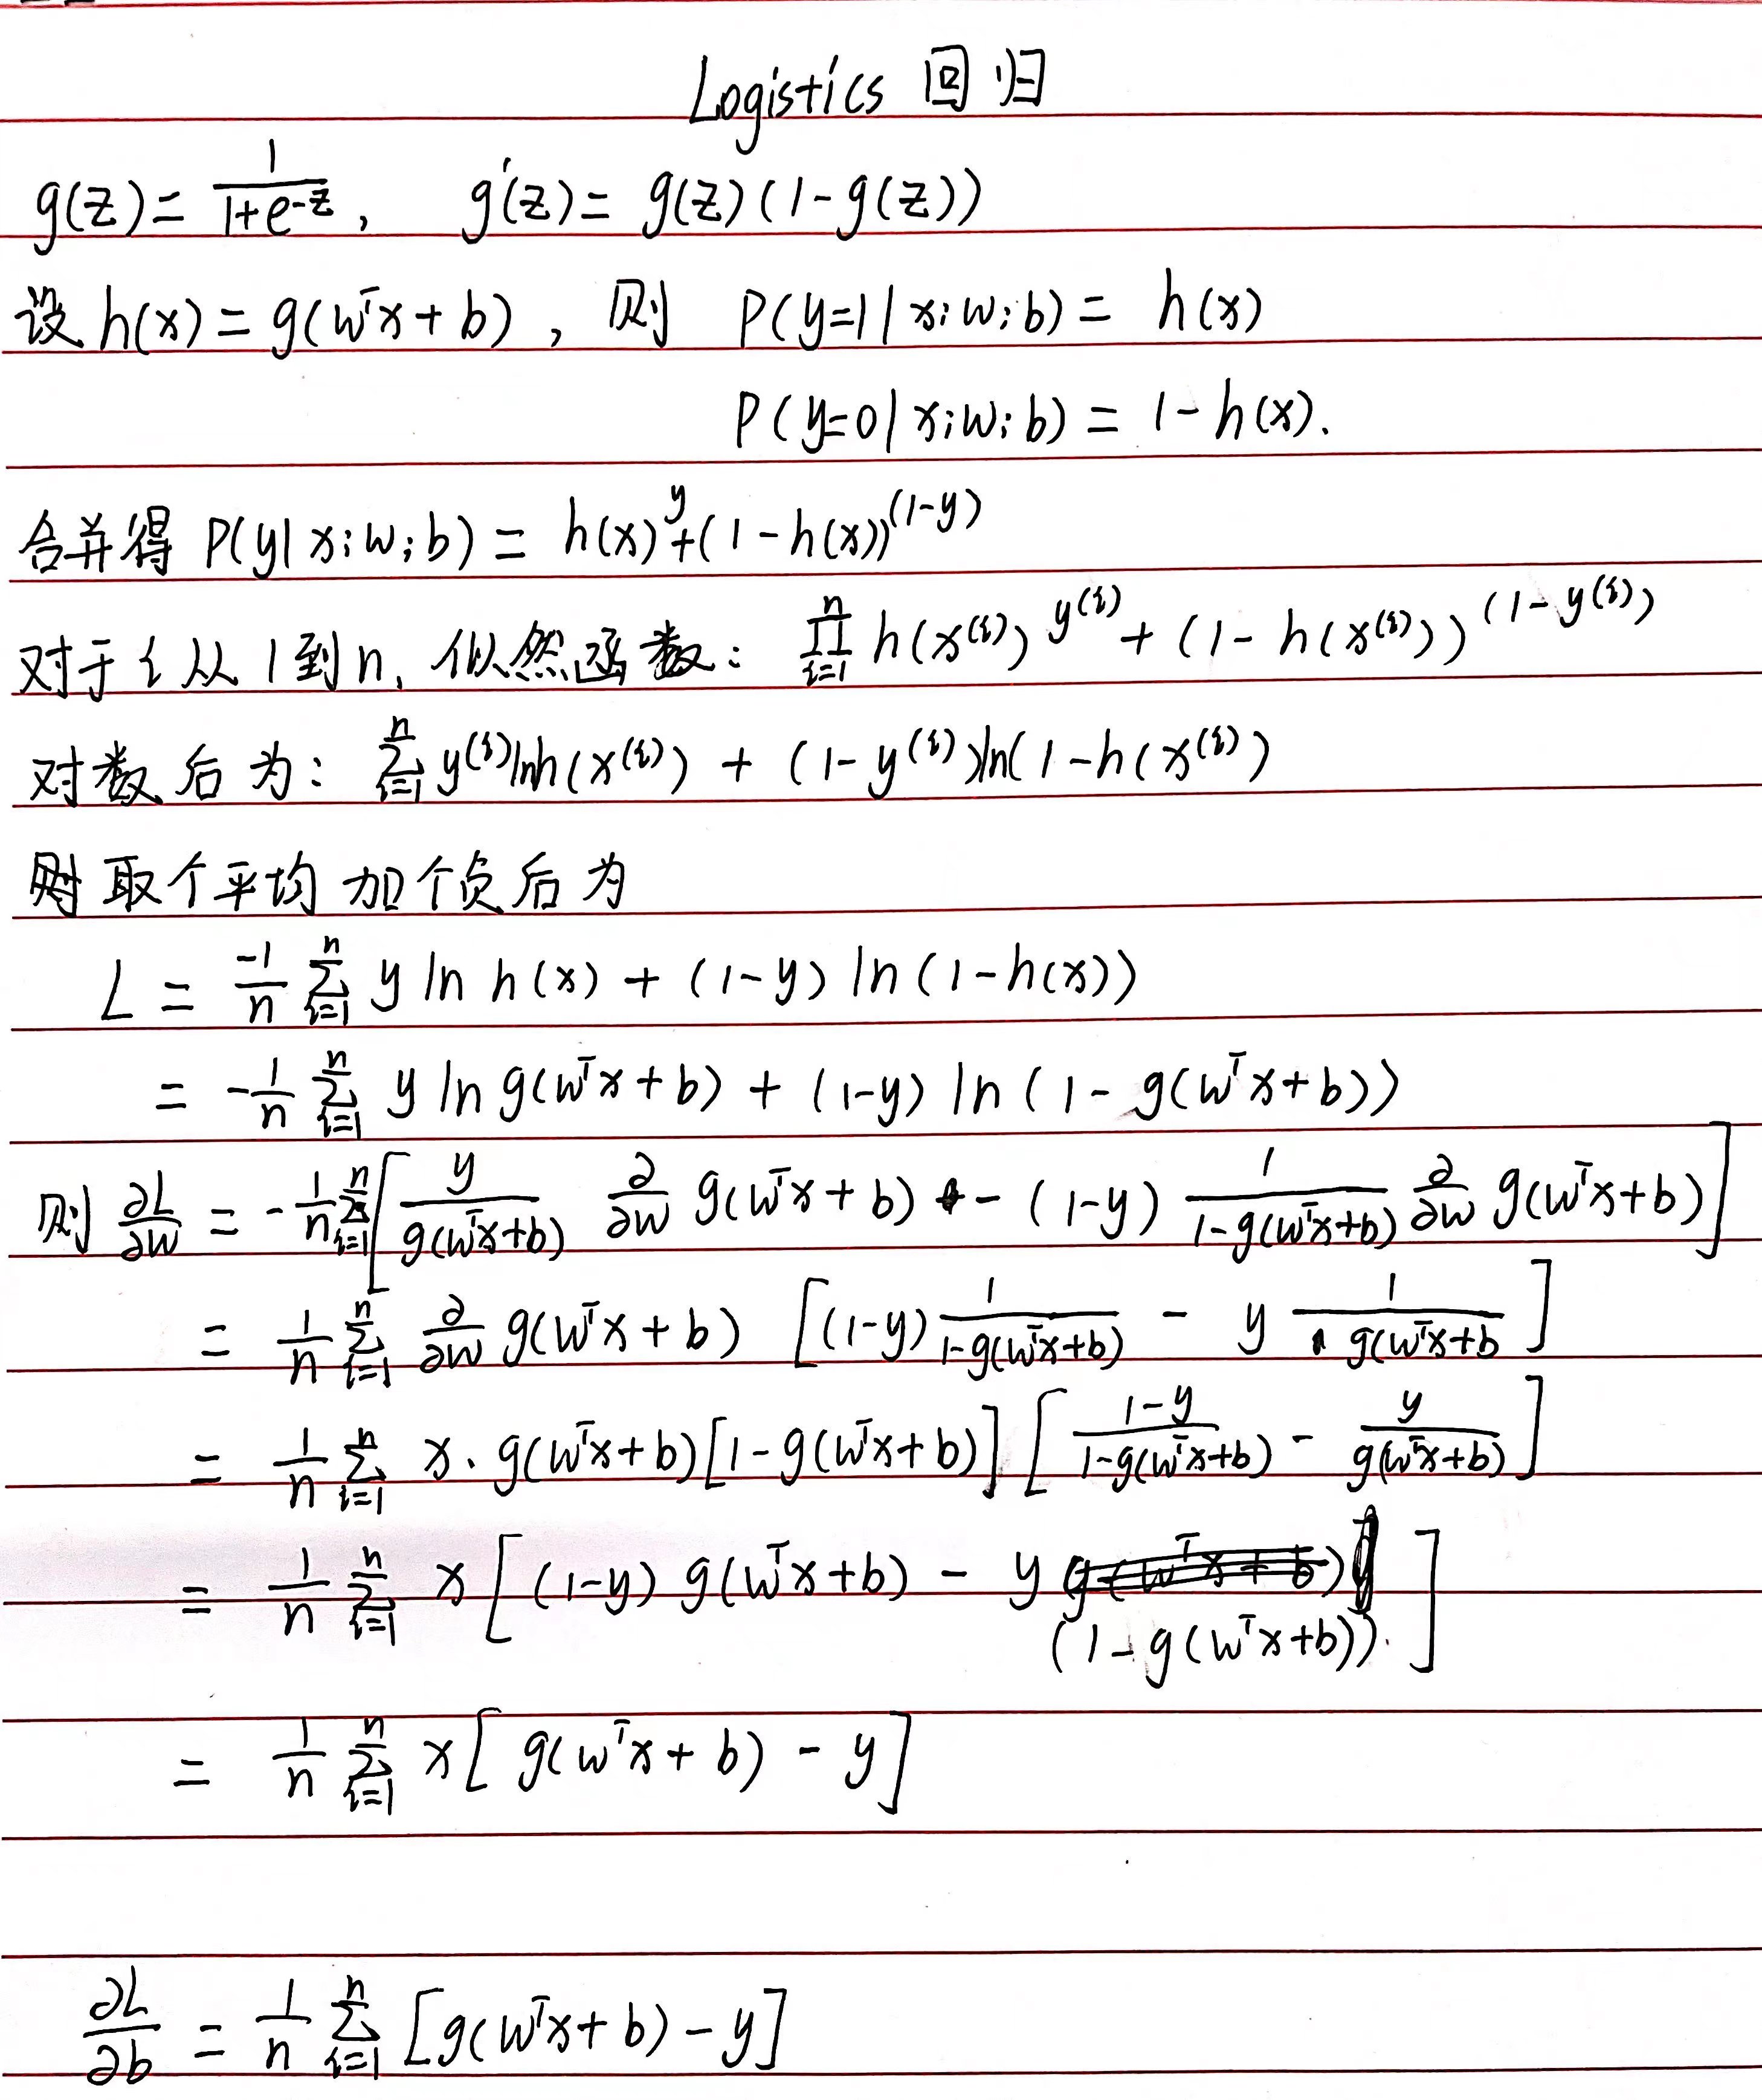 Logistics 回归
g(z) = 1/(1+e^{-z}), g'(z) = g(z)(1-g(z))
设 h(x) = g(wᵀx+b), 则 P(y=1|x;w;b) = h(x)
P(y=0|x;w;b) = 1-h(x).
合并得 P(y|x;w;b) = h(x)^y+(1-h(x))^{(1-y)}
对于 i 从 1 到 n, 似然函数: ∏_{i=1}^n h(x^{(i)})^{y^{(i)}} + (1-h(x^{(i)}))^{(1-y^{(i)})}
对数后为: ∑_{i=1}^n y^{(i)}lnh(x^{(i)}) + (1-y^{(i)})ln(1-h(x^{(i)})
取个平均 加个负后为
L = \frac{-1}{n} ∑_{i=1}^n y ln h(x) + (1-y) ln(1-h(x))
= -\frac{1}{n} ∑_{i=1}^n y ln g(wᵀx+b) + (1-y) ln(1-g(wᵀx+b))
则 \frac{∂L}{∂w} = -\frac{1}{n} ∑_{i=1}^n [\frac{y}{g(wᵀx+b)} \frac{∂}{∂w} g(wᵀx+b) - (1-y) \frac{1}{1-g(wᵀx+b)} \frac{∂}{∂w} g(wᵀx+b)]
= \frac{1}{n} ∑_{i=1}^n \frac{∂}{∂w} g(wᵀx+b) [(1-y) \frac{1}{1-g(wᵀx+b)} - y \frac{1}{g(wᵀx+b}]
= \frac{1}{n} ∑_{i=1}^n x· g(wᵀx+b)[1-g(wᵀx+b)] [\frac{1-y}{1-g(wᵀx+b)} - \frac{y}{g(wᵀx+b)}]
= \frac{1}{n} ∑_{i=1}^n x[(1-y) g(wᵀx+b) - y (1-g(wᵀx+b)).]
= \frac{1}{n} ∑_{i=1}^n x[g(wᵀx+b) - y]
\frac{∂L}{∂b} = \frac{1}{n} ∑_{i=1}^n [g(wᵀx+b)-y]